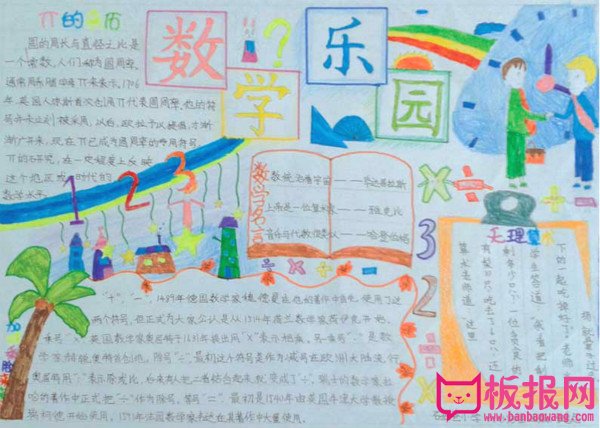 π的来历
数学乐园
圆的周长与直径之比是
一个常数,人们称为圆周率。
通常用希腊字母π来表示。1706
年,英国人琼斯首次创用π代表圆周率。他的符
号并未立刻被采用,以后,欧拉予以提倡,才渐
渐广推开来。现在π已成为圆周率的专用符号
π的研究,在一定程度上反映
这个地区或时代的
数学水平
1 2 3
数学名言
数统治着宇宙——毕达哥拉斯
上帝是一位算术家——雅克比
音乐与代数很类似——哈登伯格
3
2
无理算术
下的一起吃掉了。老师
学生答道:
算术老师道
"十"、"一",1489年德国数学家魏德曼在他的著作中首先使用了这
两个符号,但正式为大家公认是从1514年荷兰数学家荷伊克开始。
乘号"×"英国数学家奥屈特于1631年提出用"×"表示相乘。另一乘号"·"是数
学家赫锐奥特首创的。除号"÷",最初这个符号是作为减号在欧洲大陆流行,
奥屈特用":"表示除或比。后来有人把二者结合起来就变成了"÷"。瑞士的数学家拉
哈的著作中正式把"÷"作为除号。等号"="最初是1540年由英国牛津大学教授
瑞柯德开始使用。1591年法国数学家韦达在其著作中大量使用。
板报网
www.banbaowang.com